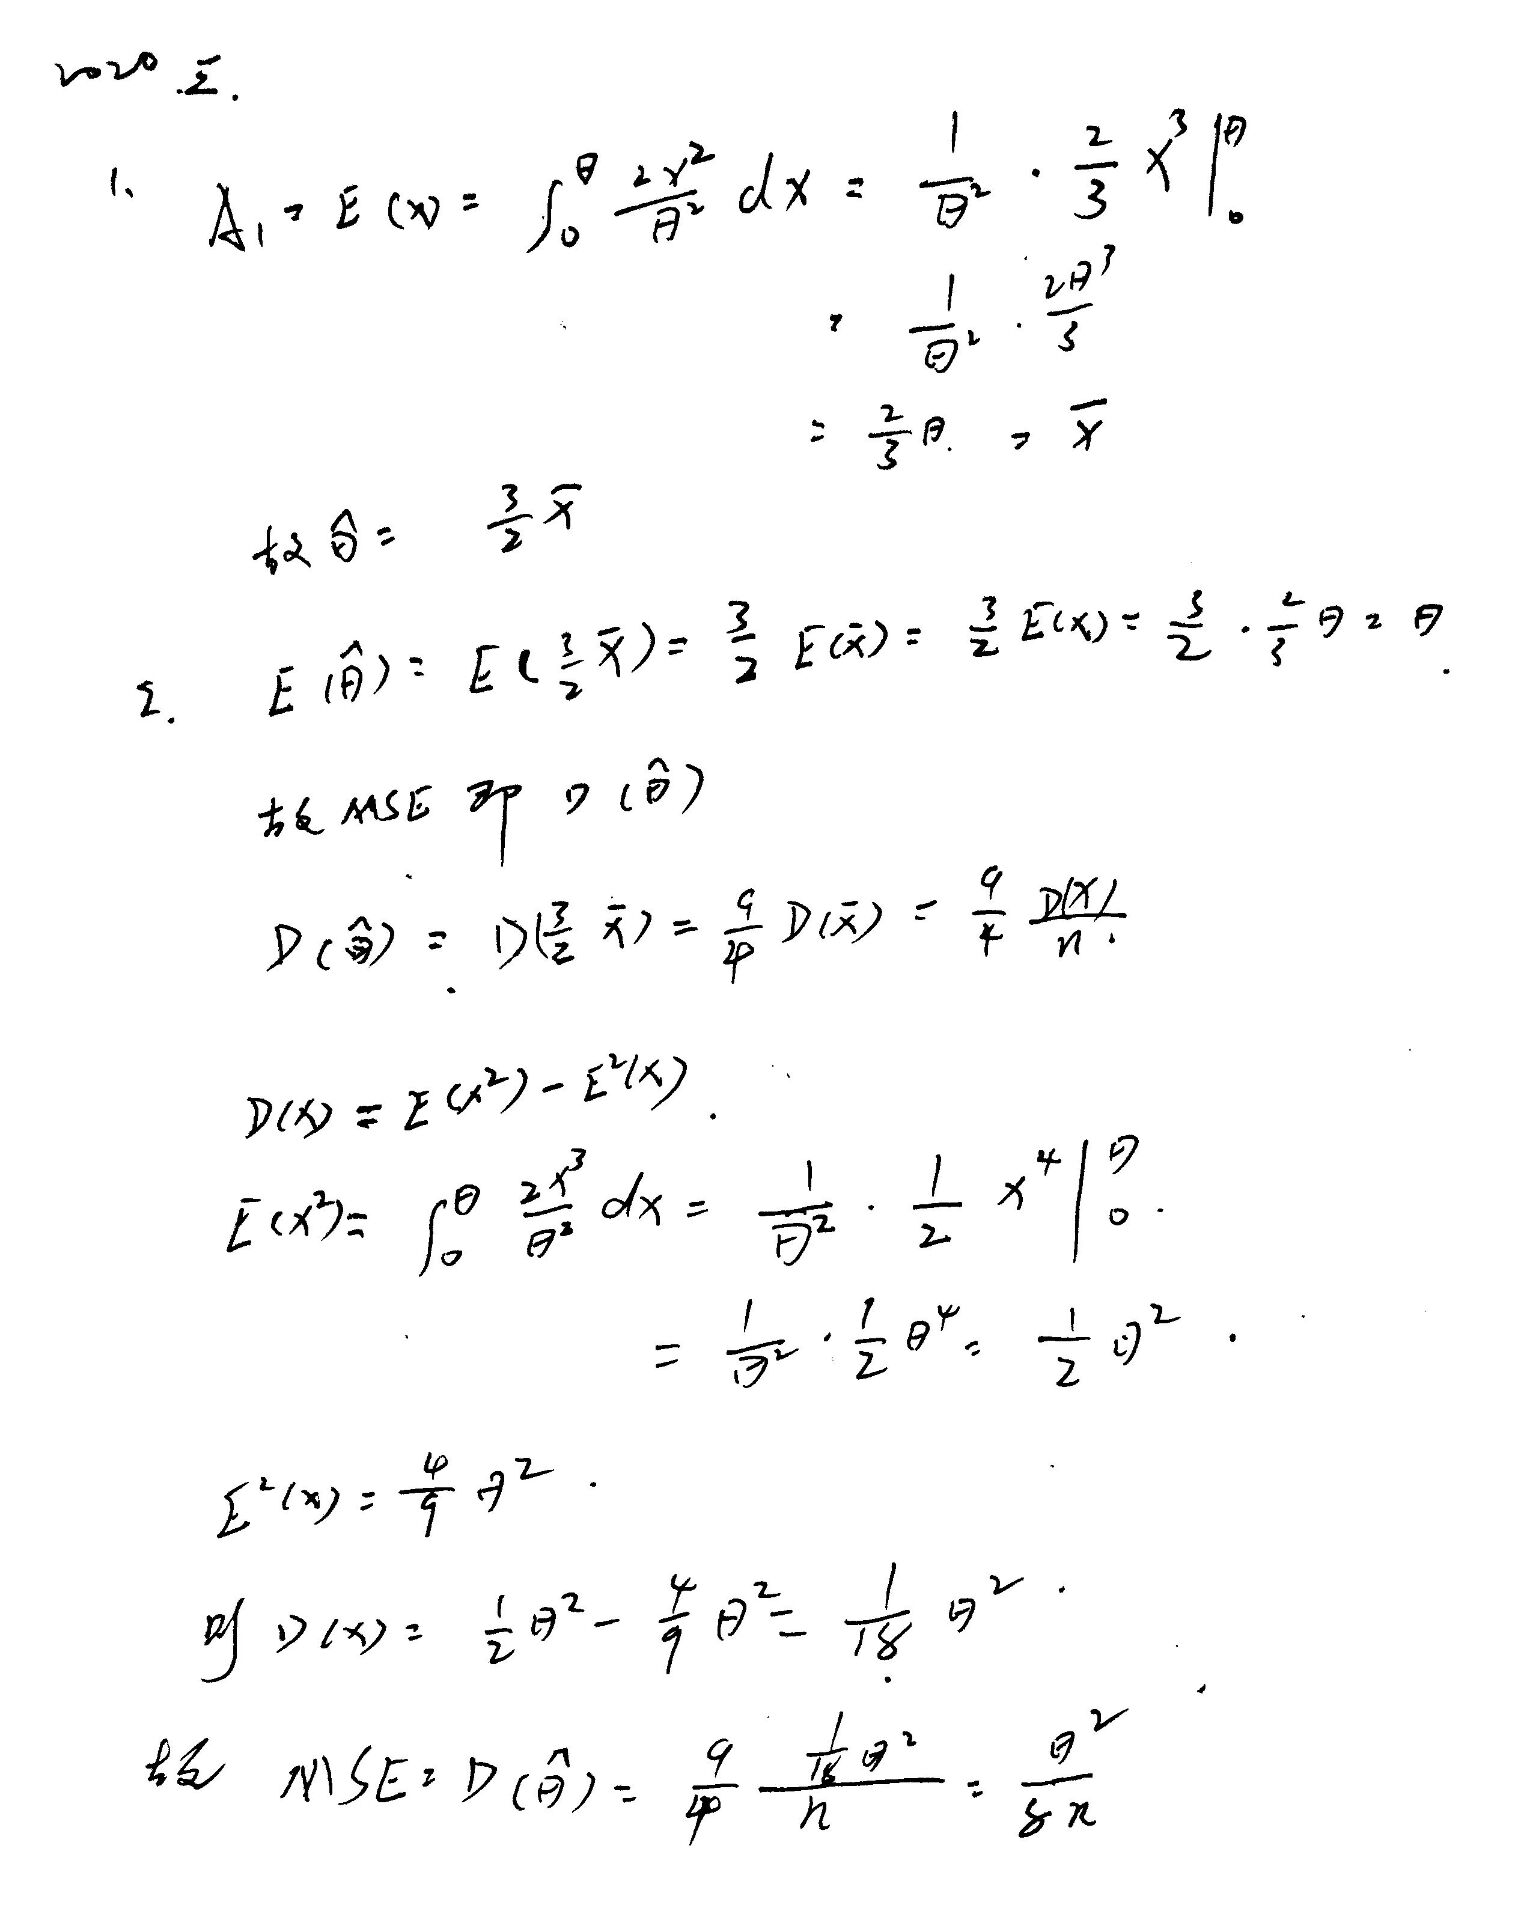 2020 五.
1. A₁ = E(x) = ∫₀^θ 2x²/θ² dx = 1/θ² · 2/3 x³ |₀^θ
= 1/θ² · 2θ³/3
= 2/3 θ. = x̄
故 θ̂ = 3/2 x̄
2. E(θ̂) = E(3/2 x̄) = 3/2 E(x̄) = 3/2 E(x) = 3/2 · 2/3 θ = θ.
故 MSE 即 D(θ̂)
D(θ̂) = D(3/2 x̄) = 9/4 D(x̄) = 9/4 D(X)/n.
D(x) = E(x²) - E²(x).
E(x²) = ∫₀^θ 2x³/θ² dx = 1/θ² · 1/2 x⁴ |₀^θ.
= 1/θ² · 1/2 θ⁴ = 1/2 θ².
E²(x) = 4/9 θ².
则 D(x) = 1/2 θ² - 4/9 θ² = 1/18 θ².
故 MSE = D(θ̂) = 9/4 (1/18 θ²)/n = θ²/8n